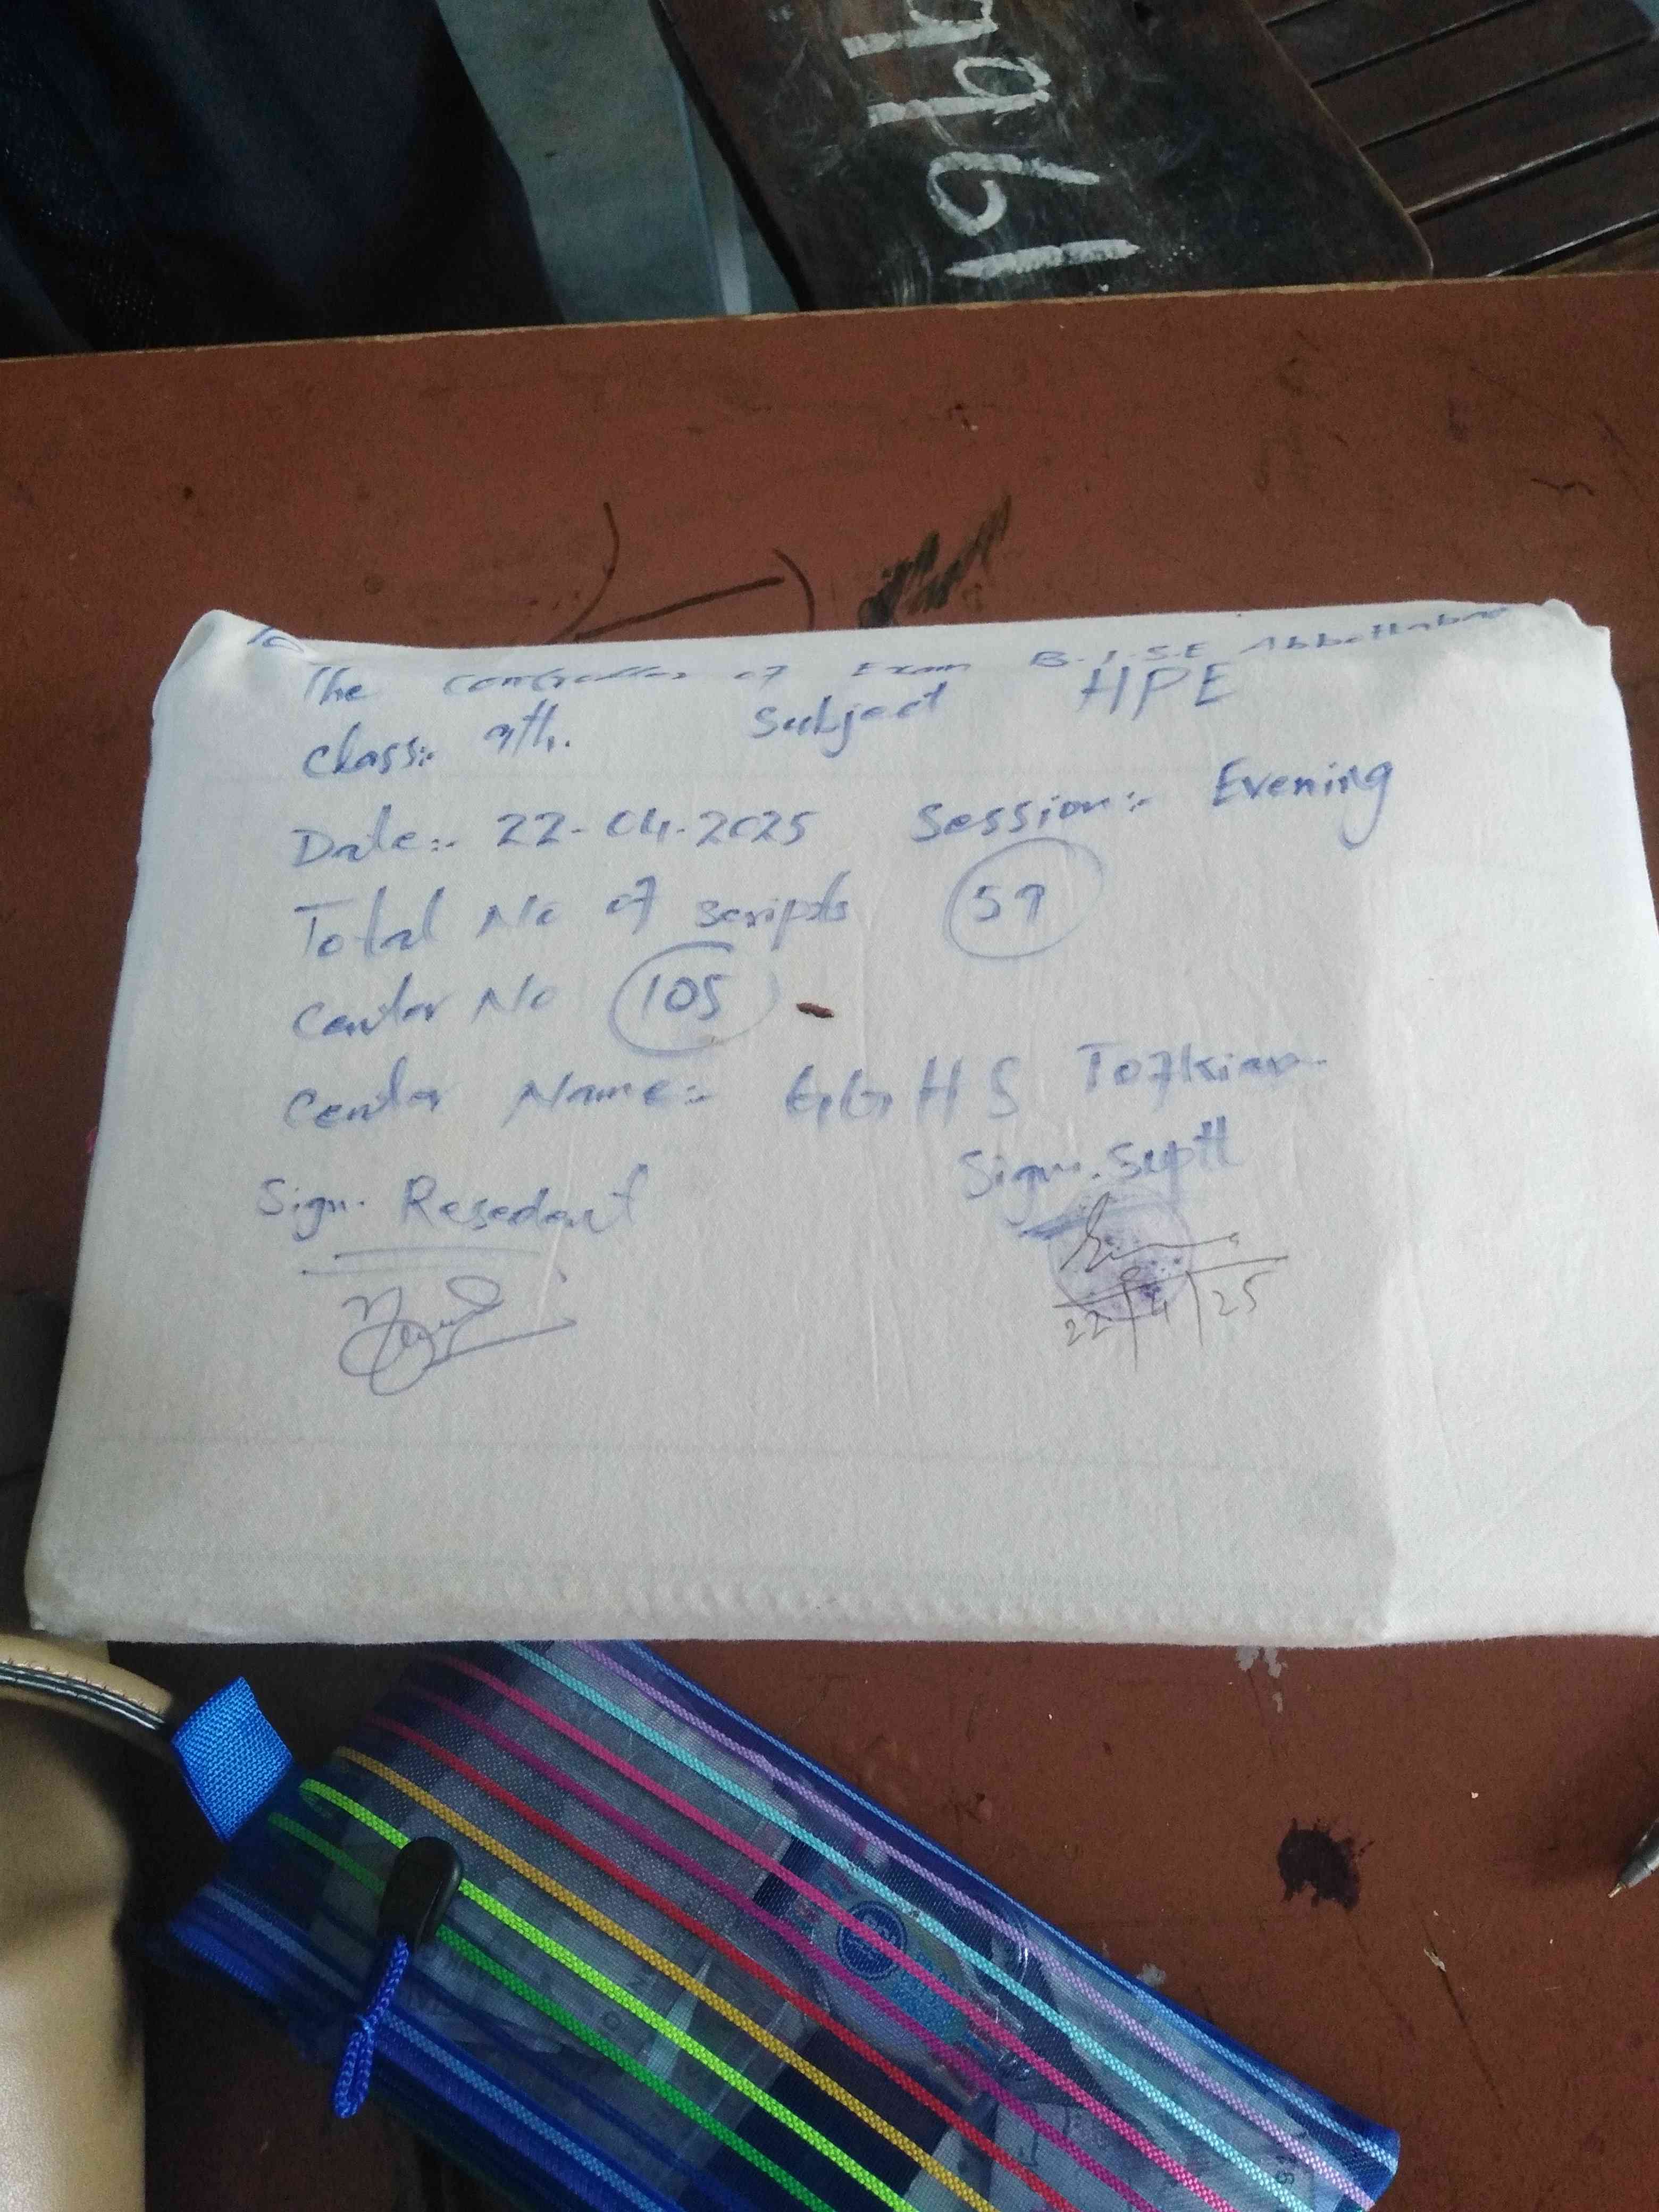 To
The Controller of Exam B.I.S.E Abbottabad
Class:- 9th. Subject HPE
Date:- 22-04-2025 Session:- Evening
Total No of scripts 59
Center No 105
Center Name:- G.G.H S
Sign. Resedent Sign. Suptt
22/4/25